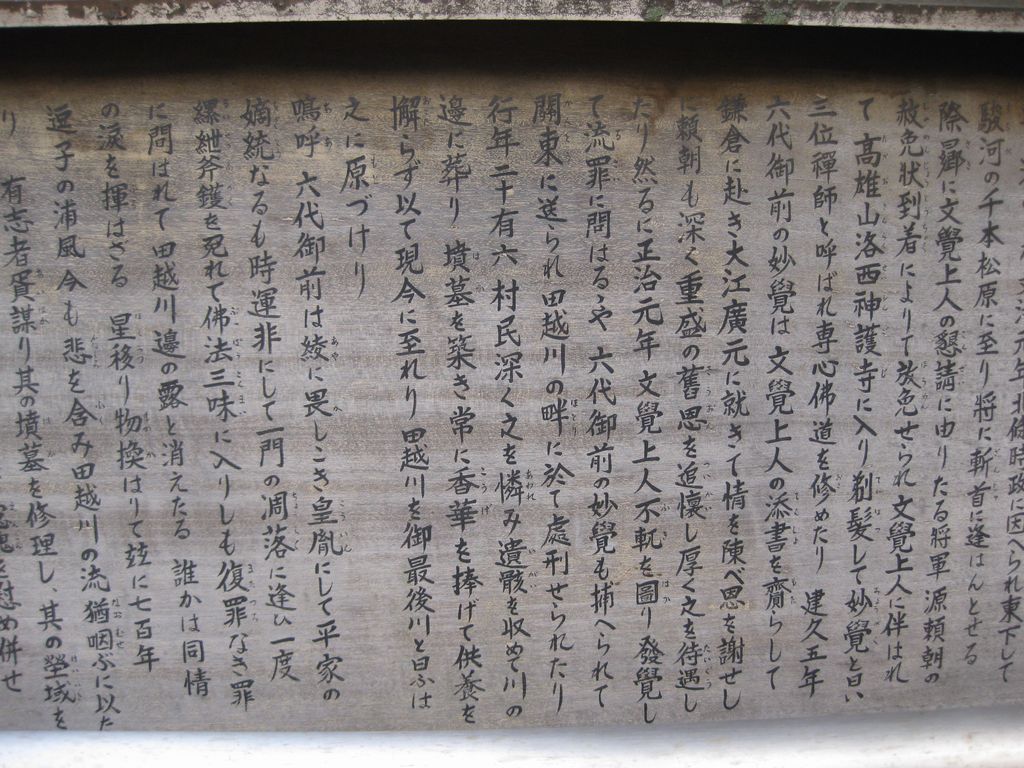 元年北條時政に因へられ東下して
駿河の千本松原に至り將に斬首に逢はんとせる
際鄕に文覺上人の懇請に由りたる將軍源頼朝の
赦免狀到着によりて放免せられ文覺上人に伴はれ
て高雄山洛西神護寺に入り剃髪して妙覺と曰い
三位禪師と呼ばれ専心佛道を修めたり 建久五年
六代御前の妙覺は文覺上人の添書を齎らして
鎌倉に赴き大江廣元に就きて情を陳べ恩を謝せし
に頼朝も深く重盛の舊恩を追懷し厚く之を待遇し
たり然るに正治元年文覺上人不軌を圖り發覺し
て流罪に問はるゝや六代御前の妙覺も捕へられて
關東に送られ田越川の畔に於て處刑せられたり
行年二十有六 村民深く之を憐み遺骸を収めて川の
邊に葬り 墳墓を築き常に香華を捧げて供養を
懈らず以て現今に至れり田越川を御最後川と曰ふは
之に原づけり
嗚呼 六代御前は綾に畏しこき皇胤にして平家の
嫡統なるも時運非にして一門の凋落に逢ひ一度
縲紲斧鑊を免れて佛法三昧に入りしも復罪なき罪
に問はれて田越川邊の露と消えたる 誰かは同情
の涙を揮はざる 星移り物換はりて玆に七百年
逗子の浦風今も悲を含み田越川の流猶咽ぶに以た
り 有志者胥謀り其の墳墓を修理し、其の塋域を
慰め併せ